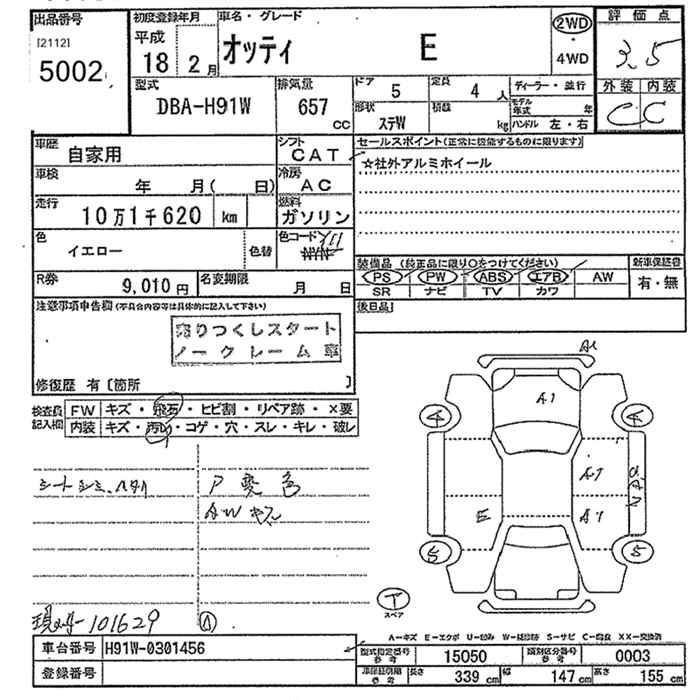 出品番号 初度登録年月 車名・グレード 2WD 評価点
[2112] 平成 オッティ E ・ 3.5
5002 18 2月 4WD 外装 内装
型式 排気量 ドア 5 定員 4 人 ディーラー・並行 C C
DBA-H91W 657 cc 形状 ステW 積載 kg モデル年式 年
ハンドル 左・右
車歴 自家用 シフト CAT セールスポイント(正常に機能するものに限ります)
車検 年 月( 日) 冷房 AC ☆社外アルミホイール
走行 10万1千620 km 燃料 ガソリン
色 イエロー 色替 色コード Y11
R券 9,010円 名変期限 月 日 装備品(純正品に限り○をつけてください) 新車保証書
PS PW ABS エアB AW 有・無
SR ナビ TV カワ
注意事項申告欄(不具合内容等は具体的に記入して下さい) 後日品
売りつくしスタート
ノークレーム車
修復歴 有〔箇所 〕
検査員記入欄 FW キズ・飛石・ヒビ割・リペア跡・×要
内装 キズ・汚れ・コゲ・穴・スレ・キレ・破レ
A1
A1
4 4
A1
E A1
5 5
シートシミ、スレ P変色
AWキズ
T
スペア
101629 A
A-キズ E-エクボ U-凹み W-補修跡 S-サビ C-腐食 XX-交換済
車台番号 H91W-0301456 型式指定番号 参考 15050 類別区分番号 参考 0003
登録番号 車検証明細 参考 長さ 339 cm 幅 147 cm 高さ 155 cm